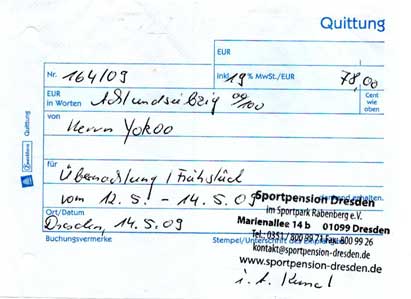 Quittung
EUR
Nr. 164/09 inkl. 19 % MwSt./EUR 78,00
EUR in Worten Achtundsiebzig 00/100 Cent wie oben
von
Herrn Yokoo
für
Übernachtung / Frühstück
vom 12.5. - 14.5.09 erhalten.
Ort/Datum
Dresden, 14.5.09
Buchungsvermerke Stempel/Unterschrift des Empfängers
Sportpension Dresden
im Sportpark Rabenberg e.V.
Marienallee 14 b 01099 Dresden
Tel.: 0351 / 800 99 71 Fax: 800 99 26
kontakt@sportpension-dresden.de
www.sportpension-dresden.de
i. A.
Quittung